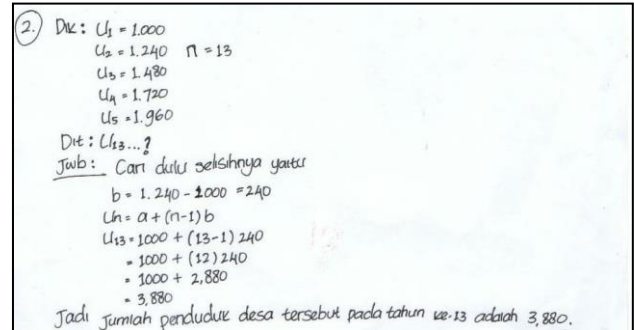 2. Dik : U1 = 1.000
U2 = 1.240 n = 13
U3 = 1.480
U4 = 1.720
U5 = 1.960
Dit : U13...?
Jwb : Cari dulu selisihnya yaitu
b = 1.240 - 1000 = 240
Un = a + (n-1) b
U13 = 1000 + (13-1) 240
= 1000 + (12) 240
= 1000 + 2,880
= 3,880
Jadi Jumlah penduduk desa tersebut pada tahun ke-13 adalah 3,880.